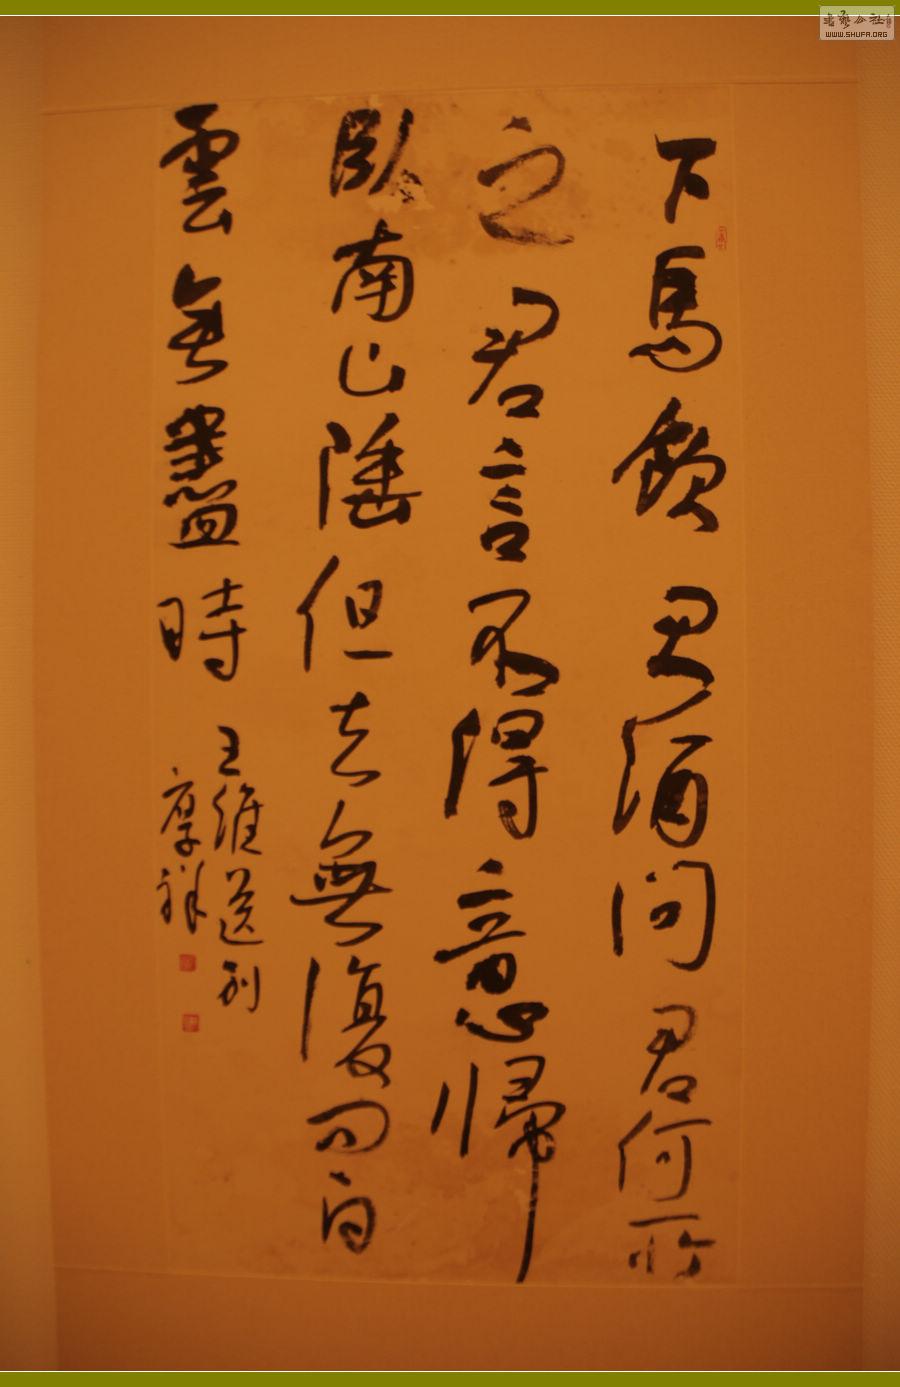 下馬飲君酒問君何所
之君言不得意歸
臥南山陲但去無復問白
雲無盡時
王維送別
厚祥
書藝公社
WWW.SHUFA.ORG